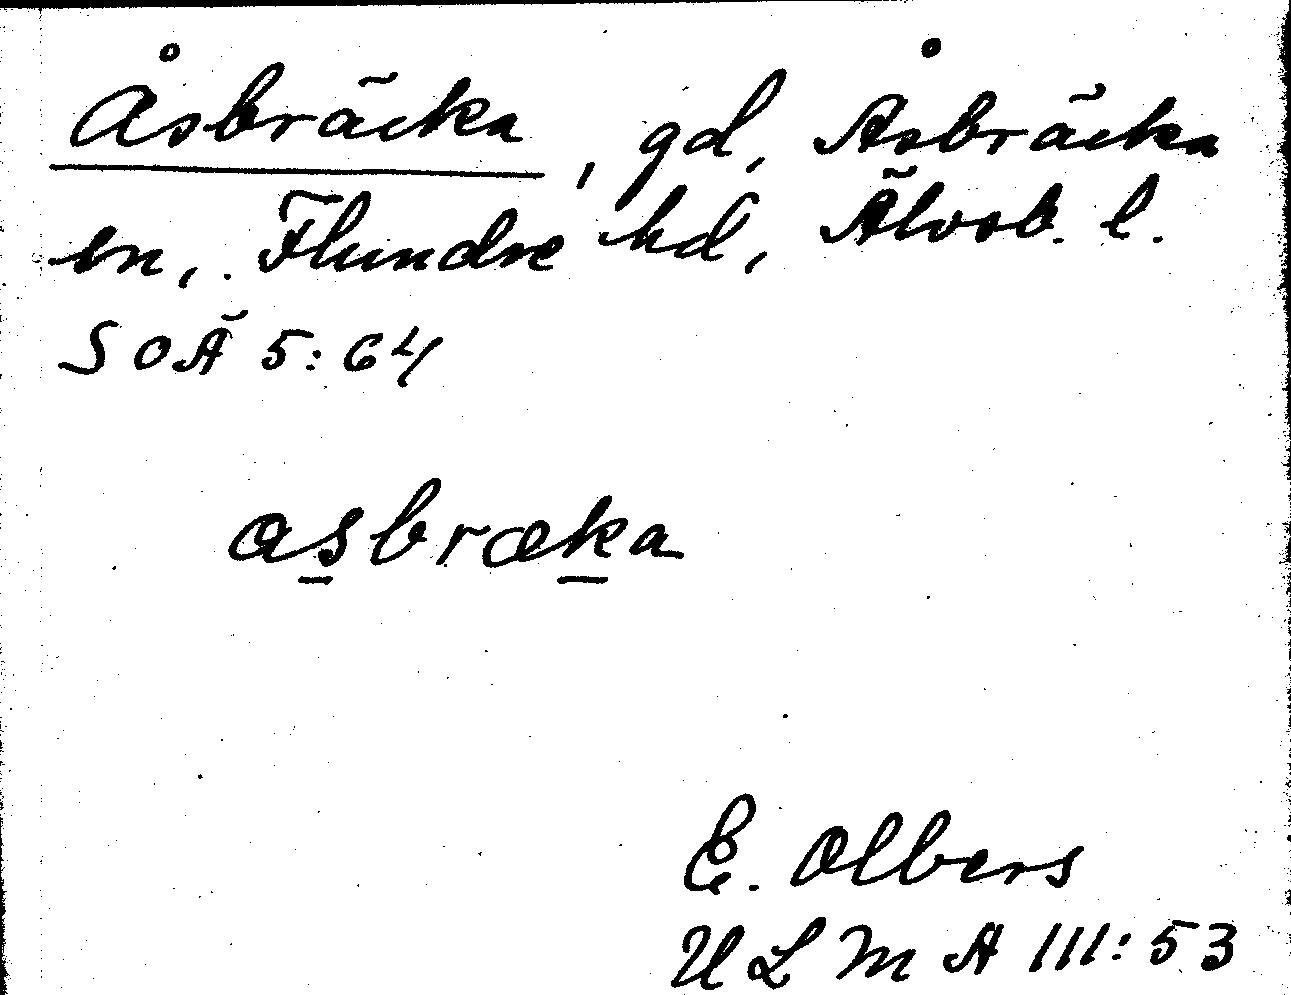 Åsbräcka, gd, Åsbräcka
sn, Flundre hd, Älvsb. l.
SOÄ 5:64
asbræka
E. Olbers
ULMA III:53